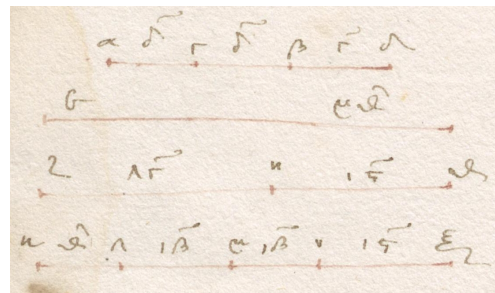 α δ̄ γ δ̄ β γ̄ δ
ε μθ̄
ζ λγ̄ η ιϛ̄ θ
κ θ̄ λ ιβ̄ μ ιβ̄ ν ιϛ̄ ξ